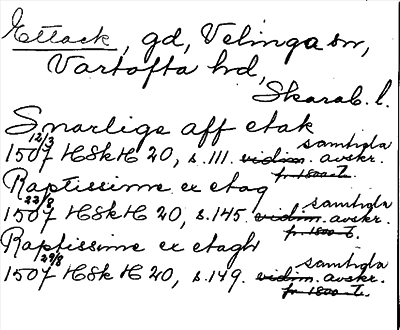 Ettack, gd, Velinga sn,
Vartofta hd,
Skarab. l.
Snarliga aff etak
12/3 samtida
1507 HSkH 20, s. 111. vidim. avskr.
fr 1800-t.
Raptissime ex etag
23/8 samtida
1507 HSkH 20, s. 145. vidim. avskr.
fr 1800-t.
Raptissime ex etagh
29/8 samtida
1507 HSkH 20, s. 149. vidim. avskr.
fr 1800-t.